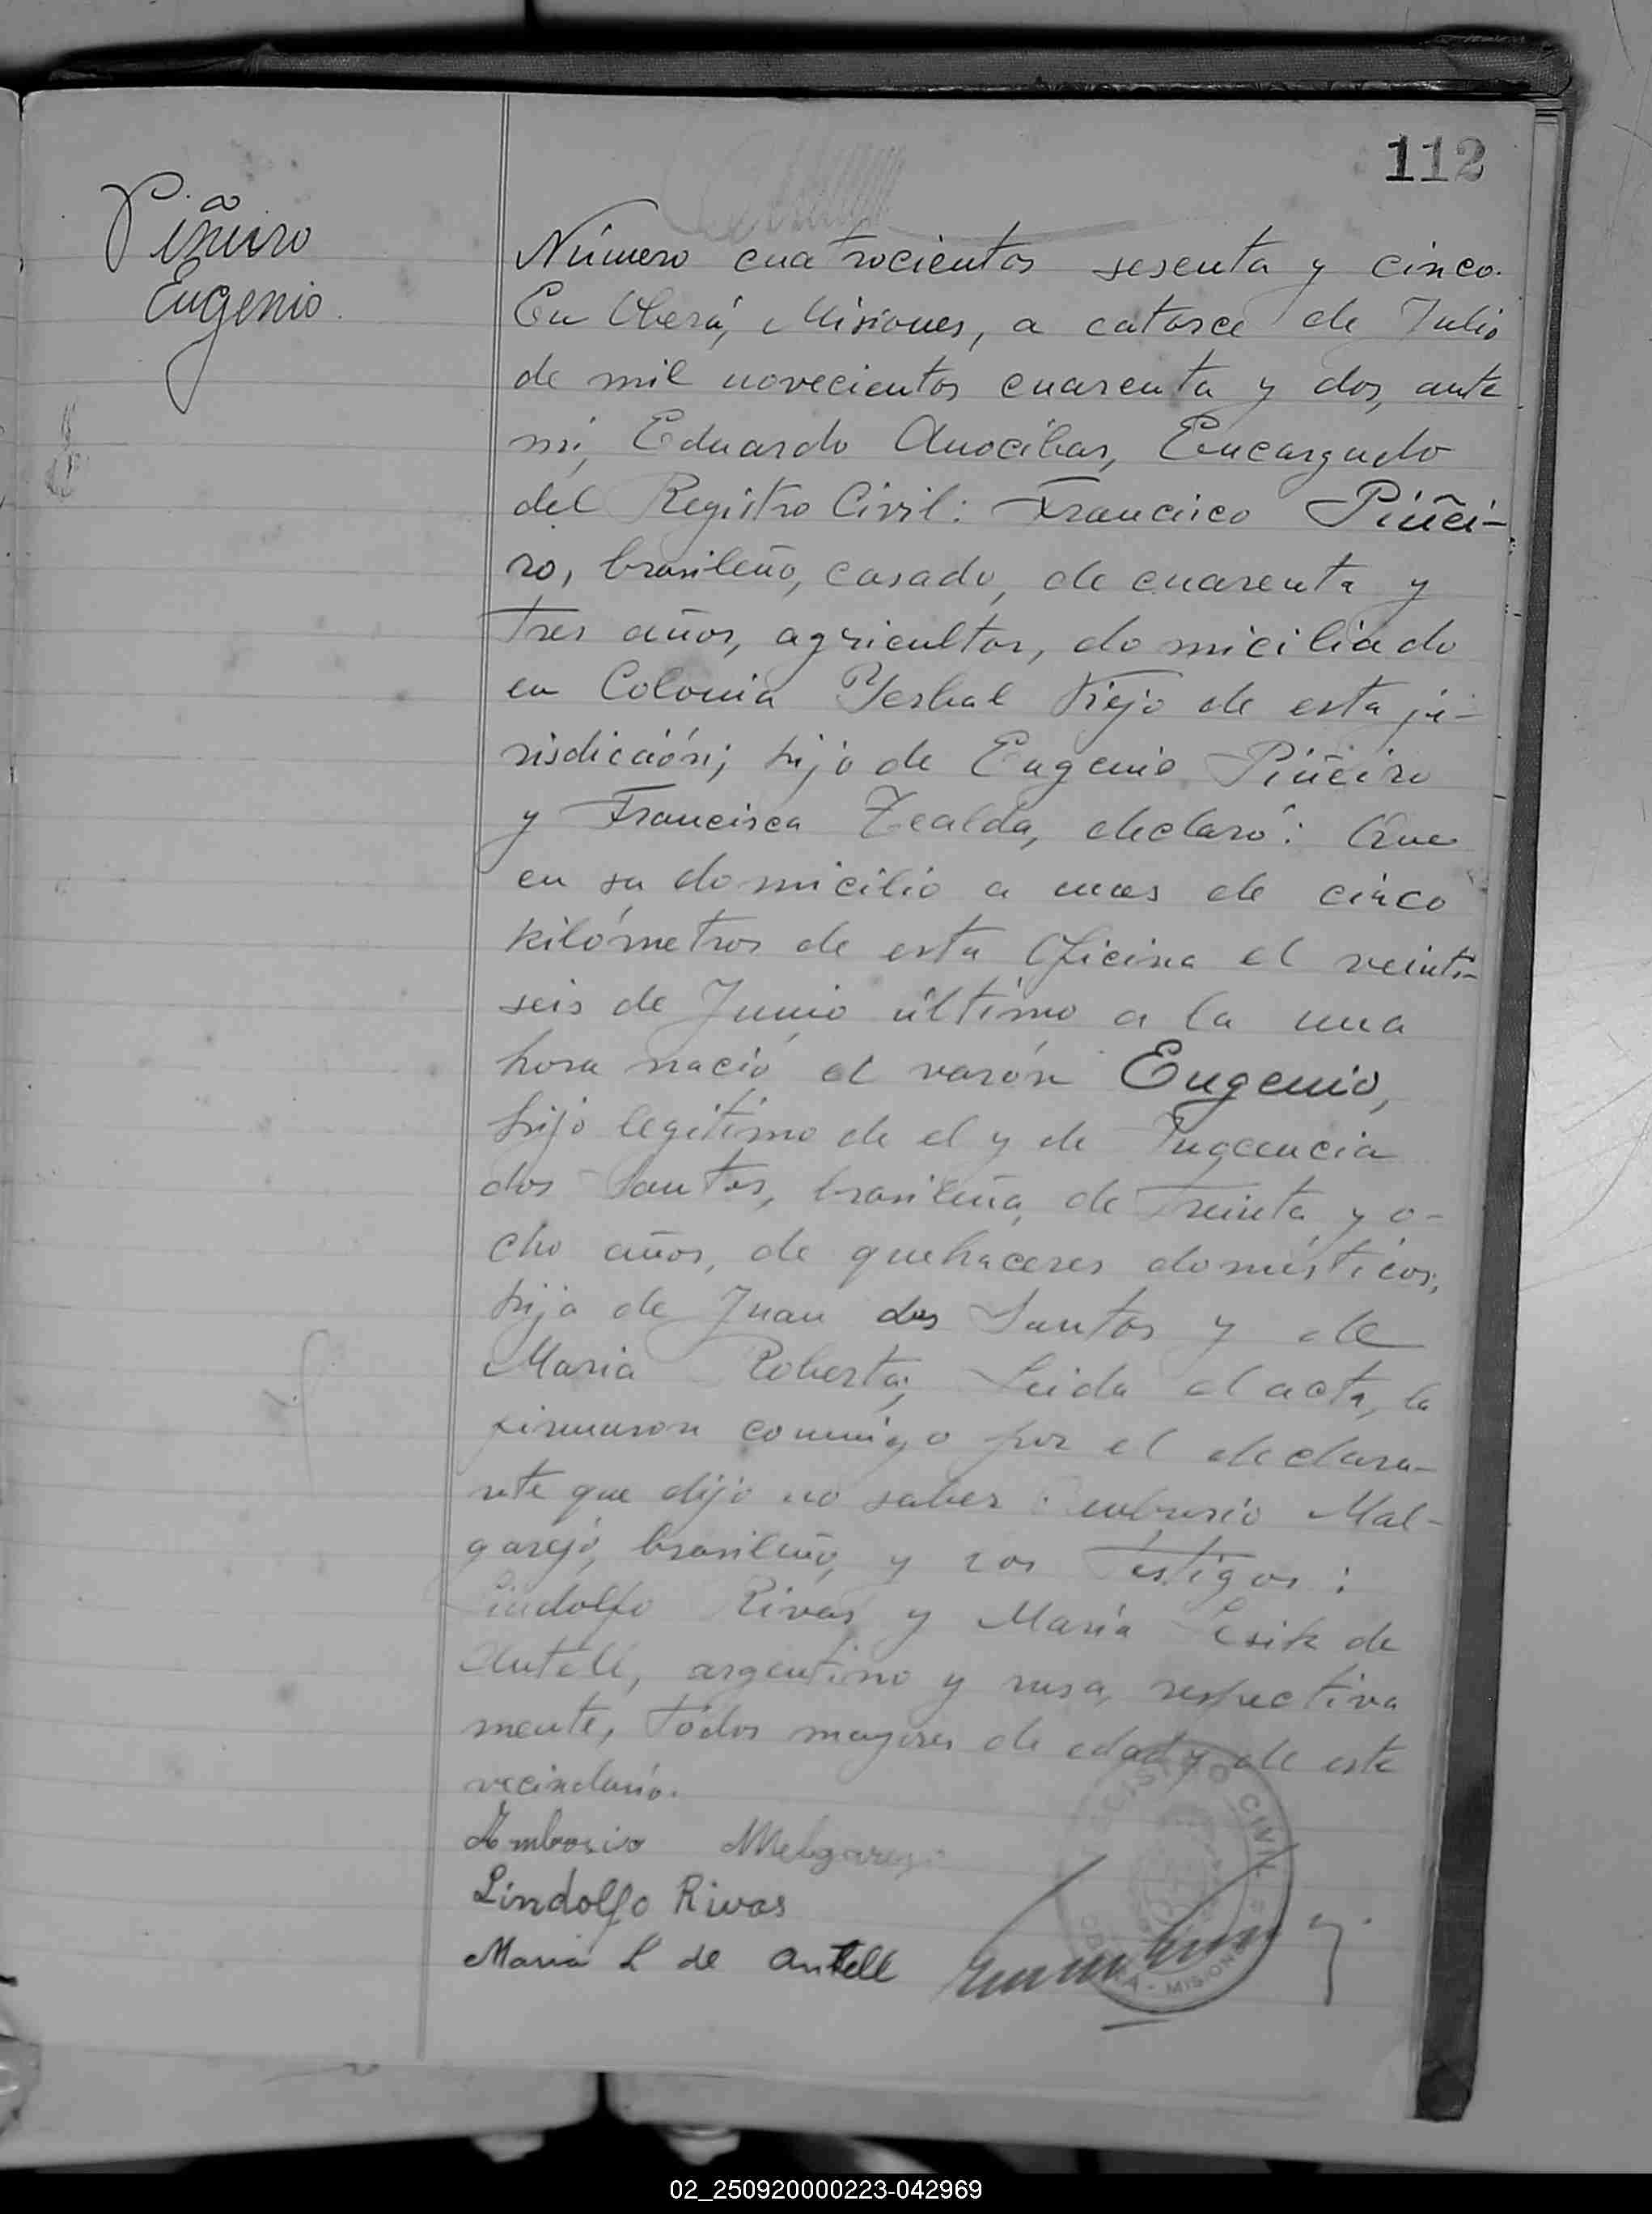 112
Piñeiro
Eugenio.
Número cuatrocientos sesenta y cinco.
En Oberá, Misiones, a catorce de Julio
de mil novecientos cuarenta y dos, ante
mi, Eduardo Anocibar, Encargado
del Registro Civil: Francisco Piñei-
ro, brasileño, casado, de cuarenta y
tres años, agricultor, domiciliado
en Colonia Yerbal Viejo de esta ju-
risdicción; hijo de Eugenio Piñeiro
y Francisca declaró: Que
en su domicilio a mas de cinco
kilómetros de esta Oficina el veinti-
seis de Junio último a la una
hora nació el varón Eugenio,
hijo legitimo de el y de
dos Santos, brasileña, de treinta y o-
cho años, de quehaceres domésticos,
hija de Juan dos Santos y de
Maria Roberta; Leida el acta, la
firmaron conmigo por el declara-
nte que dijo no saber Ambrosio Mel-
garejo, brasileño, y los testigos:
Lindolfo Rivas y María de
Antell, argentino y rusa, respectiva
mente, todos mayores de edad y de este
vecindario.
Ambrosio Melgarejo
Lindolfo Rivas
Maria L de Antell
REGISTRO CIVIL
OBERA - MISIONES
02_250920000223-042969